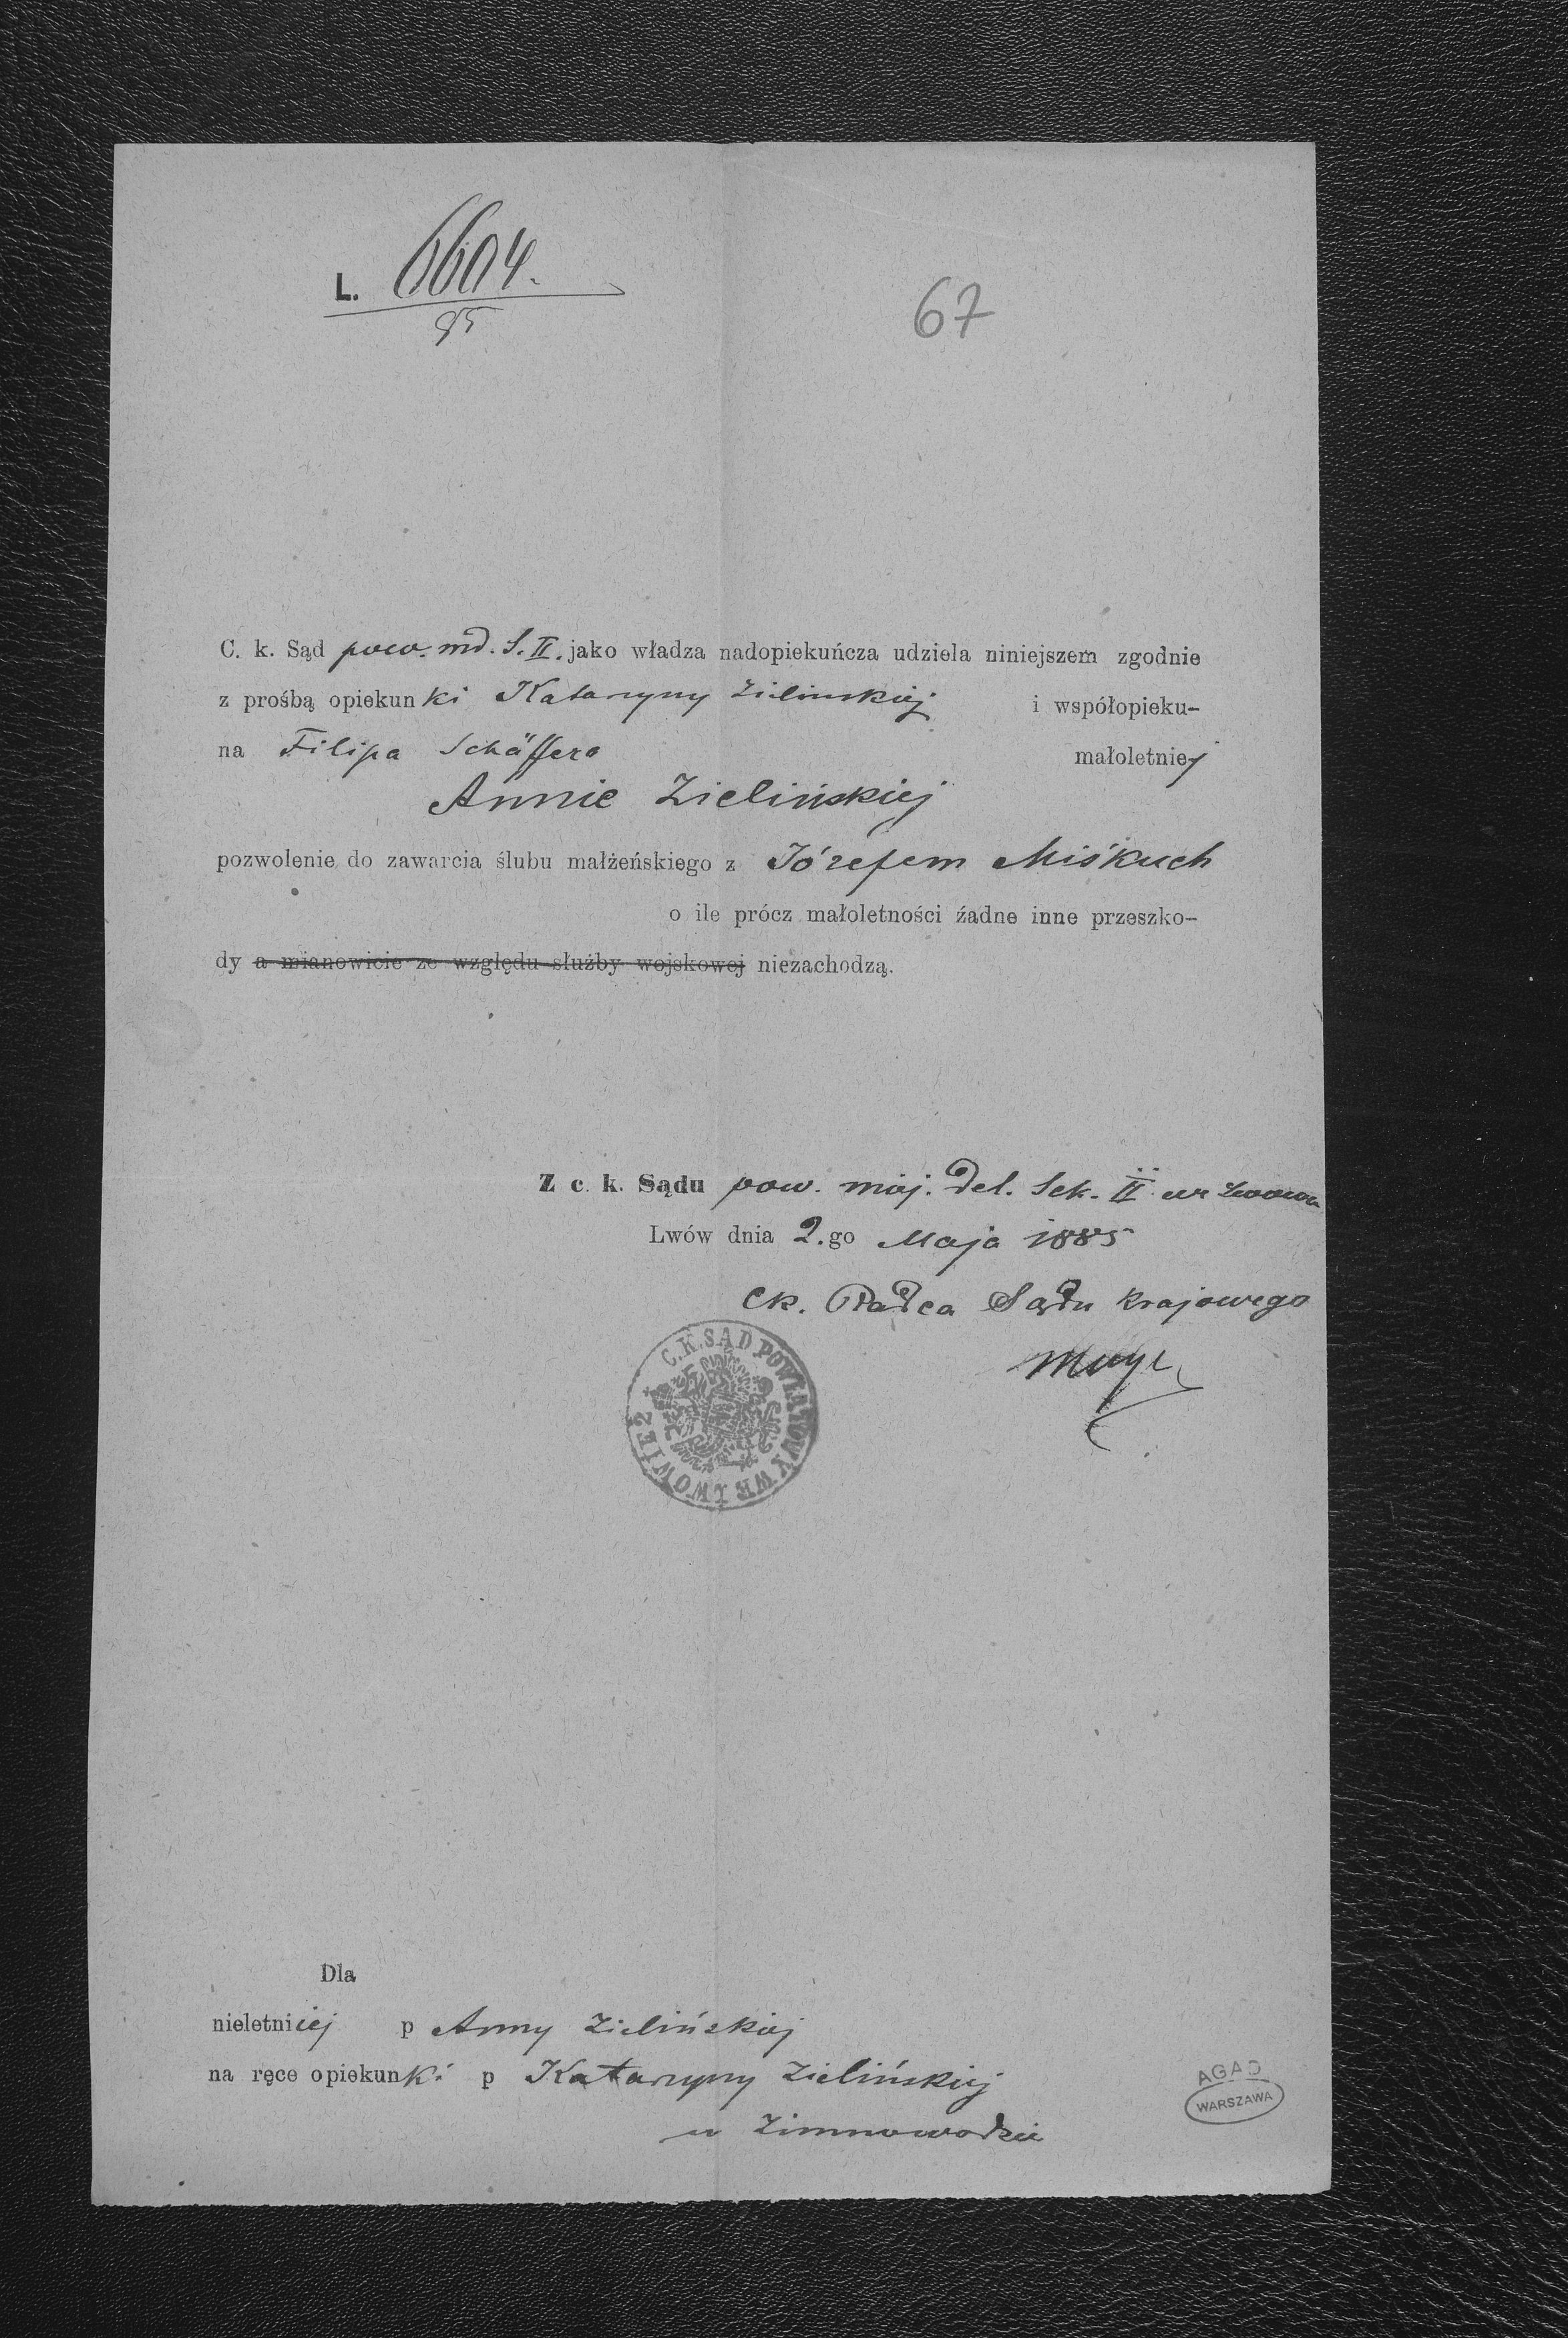 L. 6604.
85
67
C. k. Sąd pow. md. S. II. jako władza nadopiekuńcza udziela niniejszem zgodnie
z prośbą opiekunki Katarzyny Zielinskiej i współopieku-
na Filipa Schäffera małoletniej
Annie Zielińskiej
pozwolenie do zawarcia ślubu małżeńskiego z Józefem Miśkuch
o ile prócz małoletności źadne inne przeszko-
dy a mianowicie ze względu służby wojskowej niezachodzą.
Z c. k. Sądu pow. miej. del. Sek. II we Lwowie
Lwów dnia 2.go Maja 1885
Ck. Radca Sądu krajowego
C.K. SĄD POWIATOWY WE LWOWIE 2
Dla
nieletniiej p Anny Zielińskiej
na ręce opiekunki p Katarzyny Zielińskiej
w Zimnowodzie
AGAD
WARSZAWA